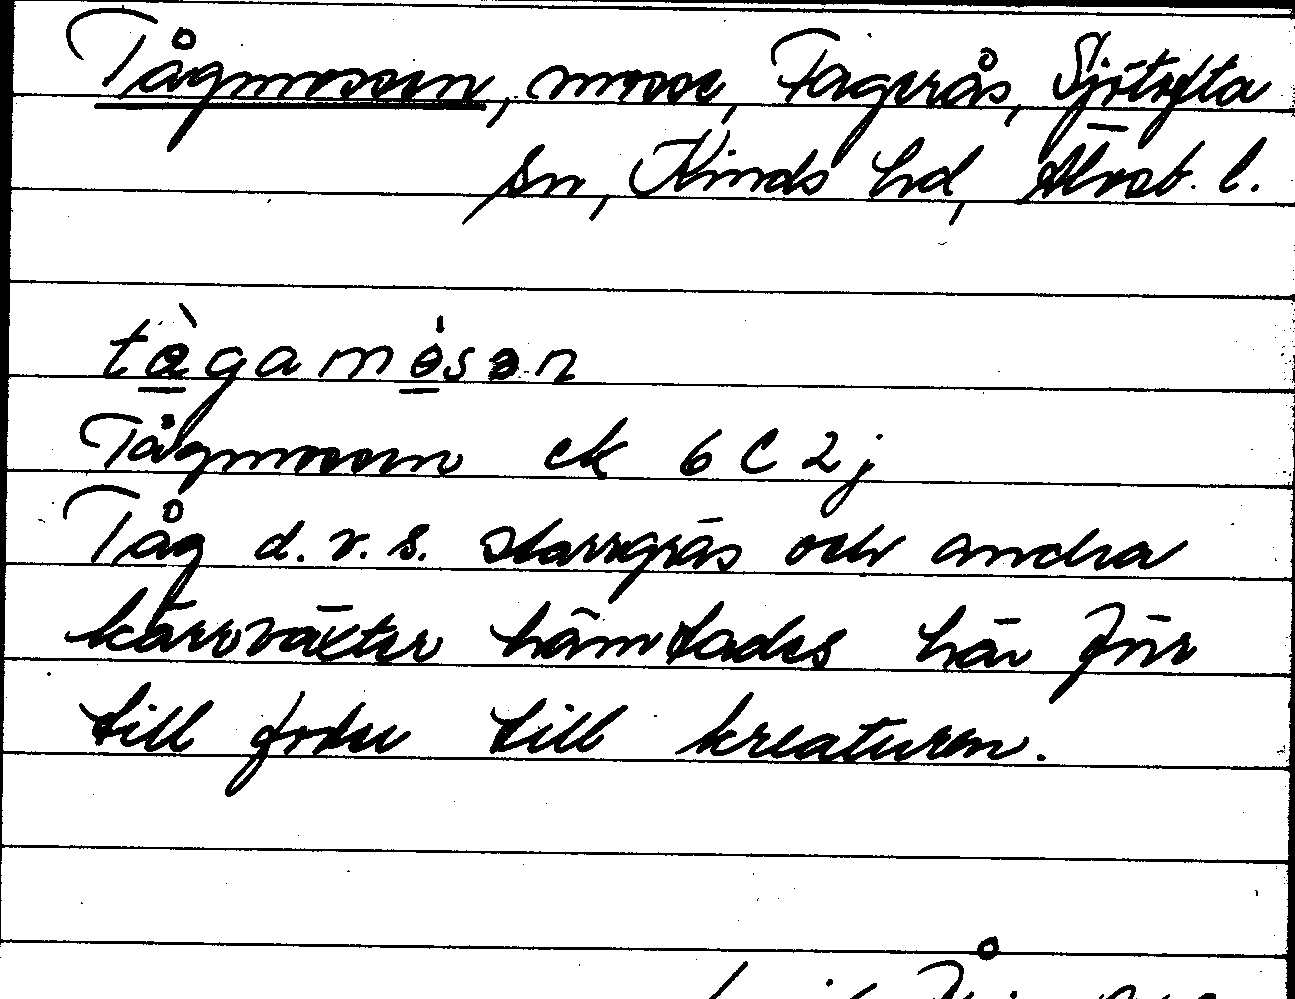 Tågmossen, mosse, Fagerås, Sjötofta
sn, Kinds hd, Älvsb. l.
tàgamòsen
Tågmossen ek 6 C 2 j
Tåg d.v.s. starrgräs och andra
kärrväxter hämtades här förr
till foder till kreaturen.